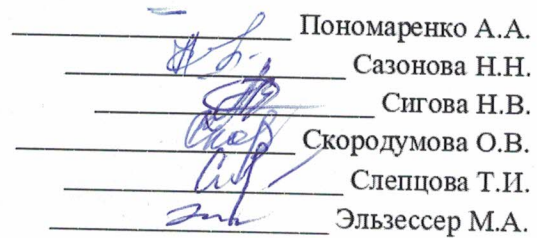 Пономаренко А.А.
Сазонова Н.Н.
Сигова Н.В.
Скородумова О.В.
Слепцова Т.И.
Эльзессер М.А.